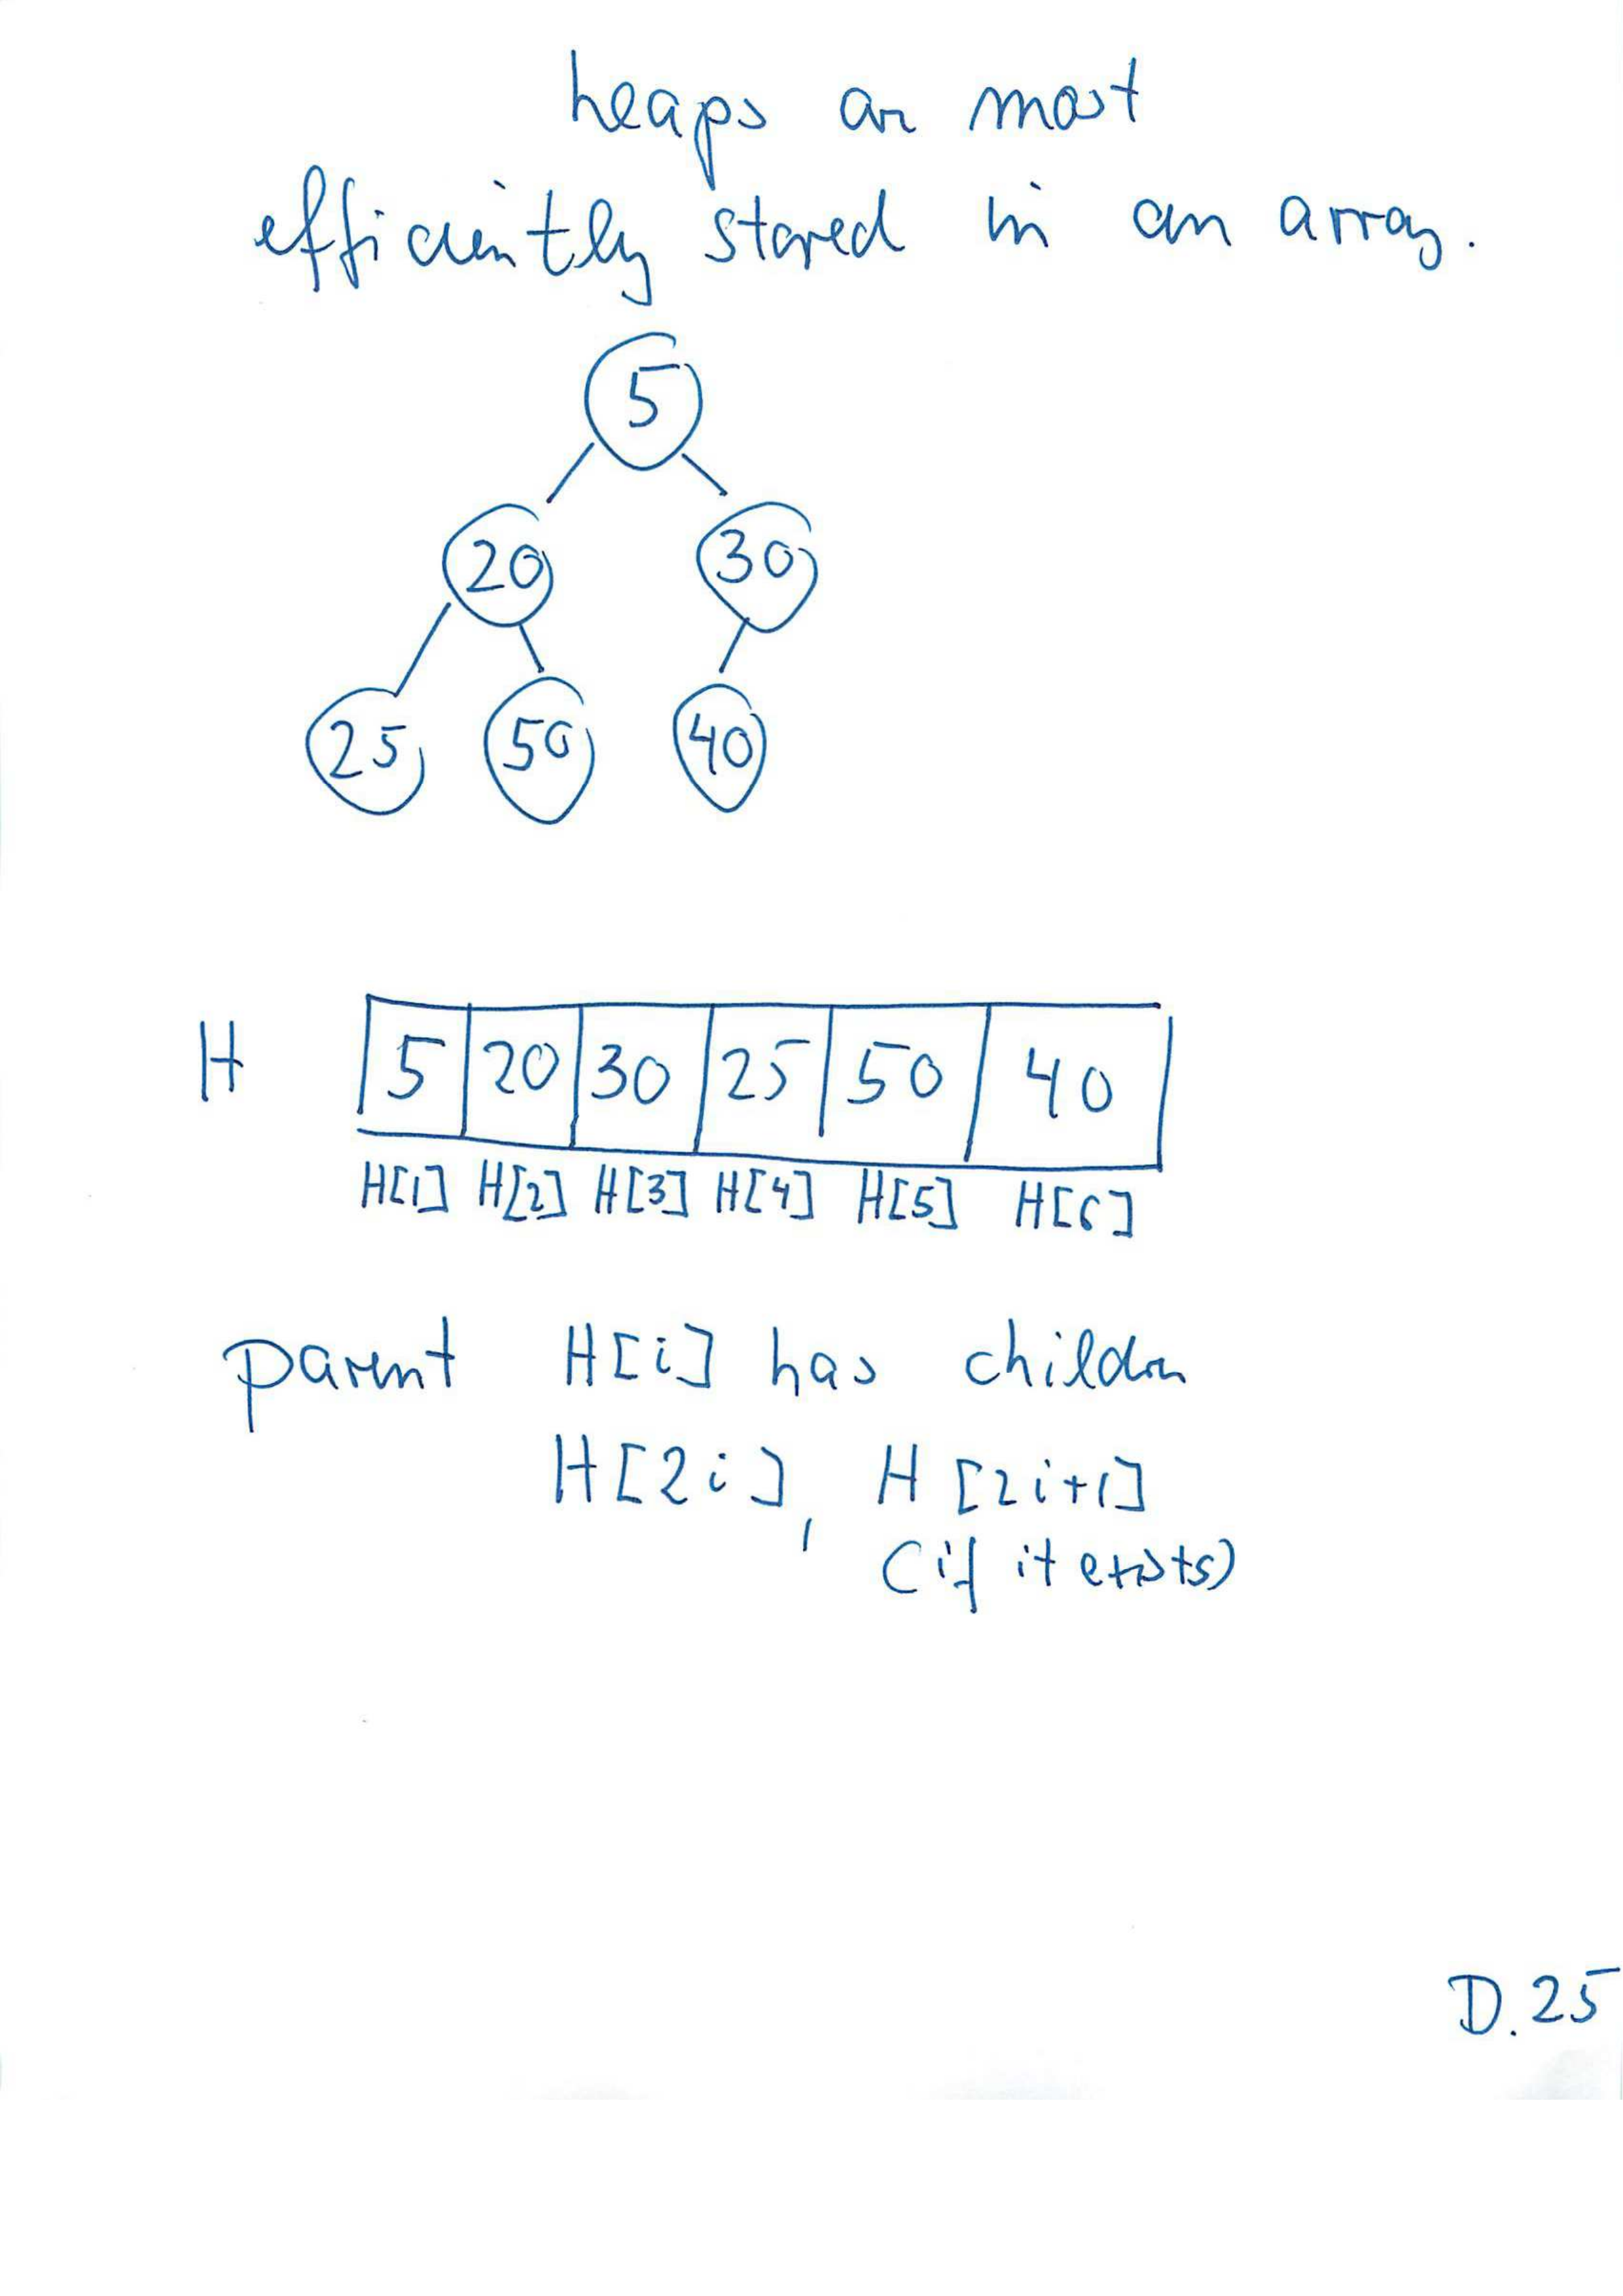 heaps are most
efficiently stored in an array.
5
20 30
25 50 40
H 5 20 30 25 50 40
H[1] H[2] H[3] H[4] H[5] H[6]
parent H[i] has children
H[2i], H[2i+1]
(if it exists)
D.25